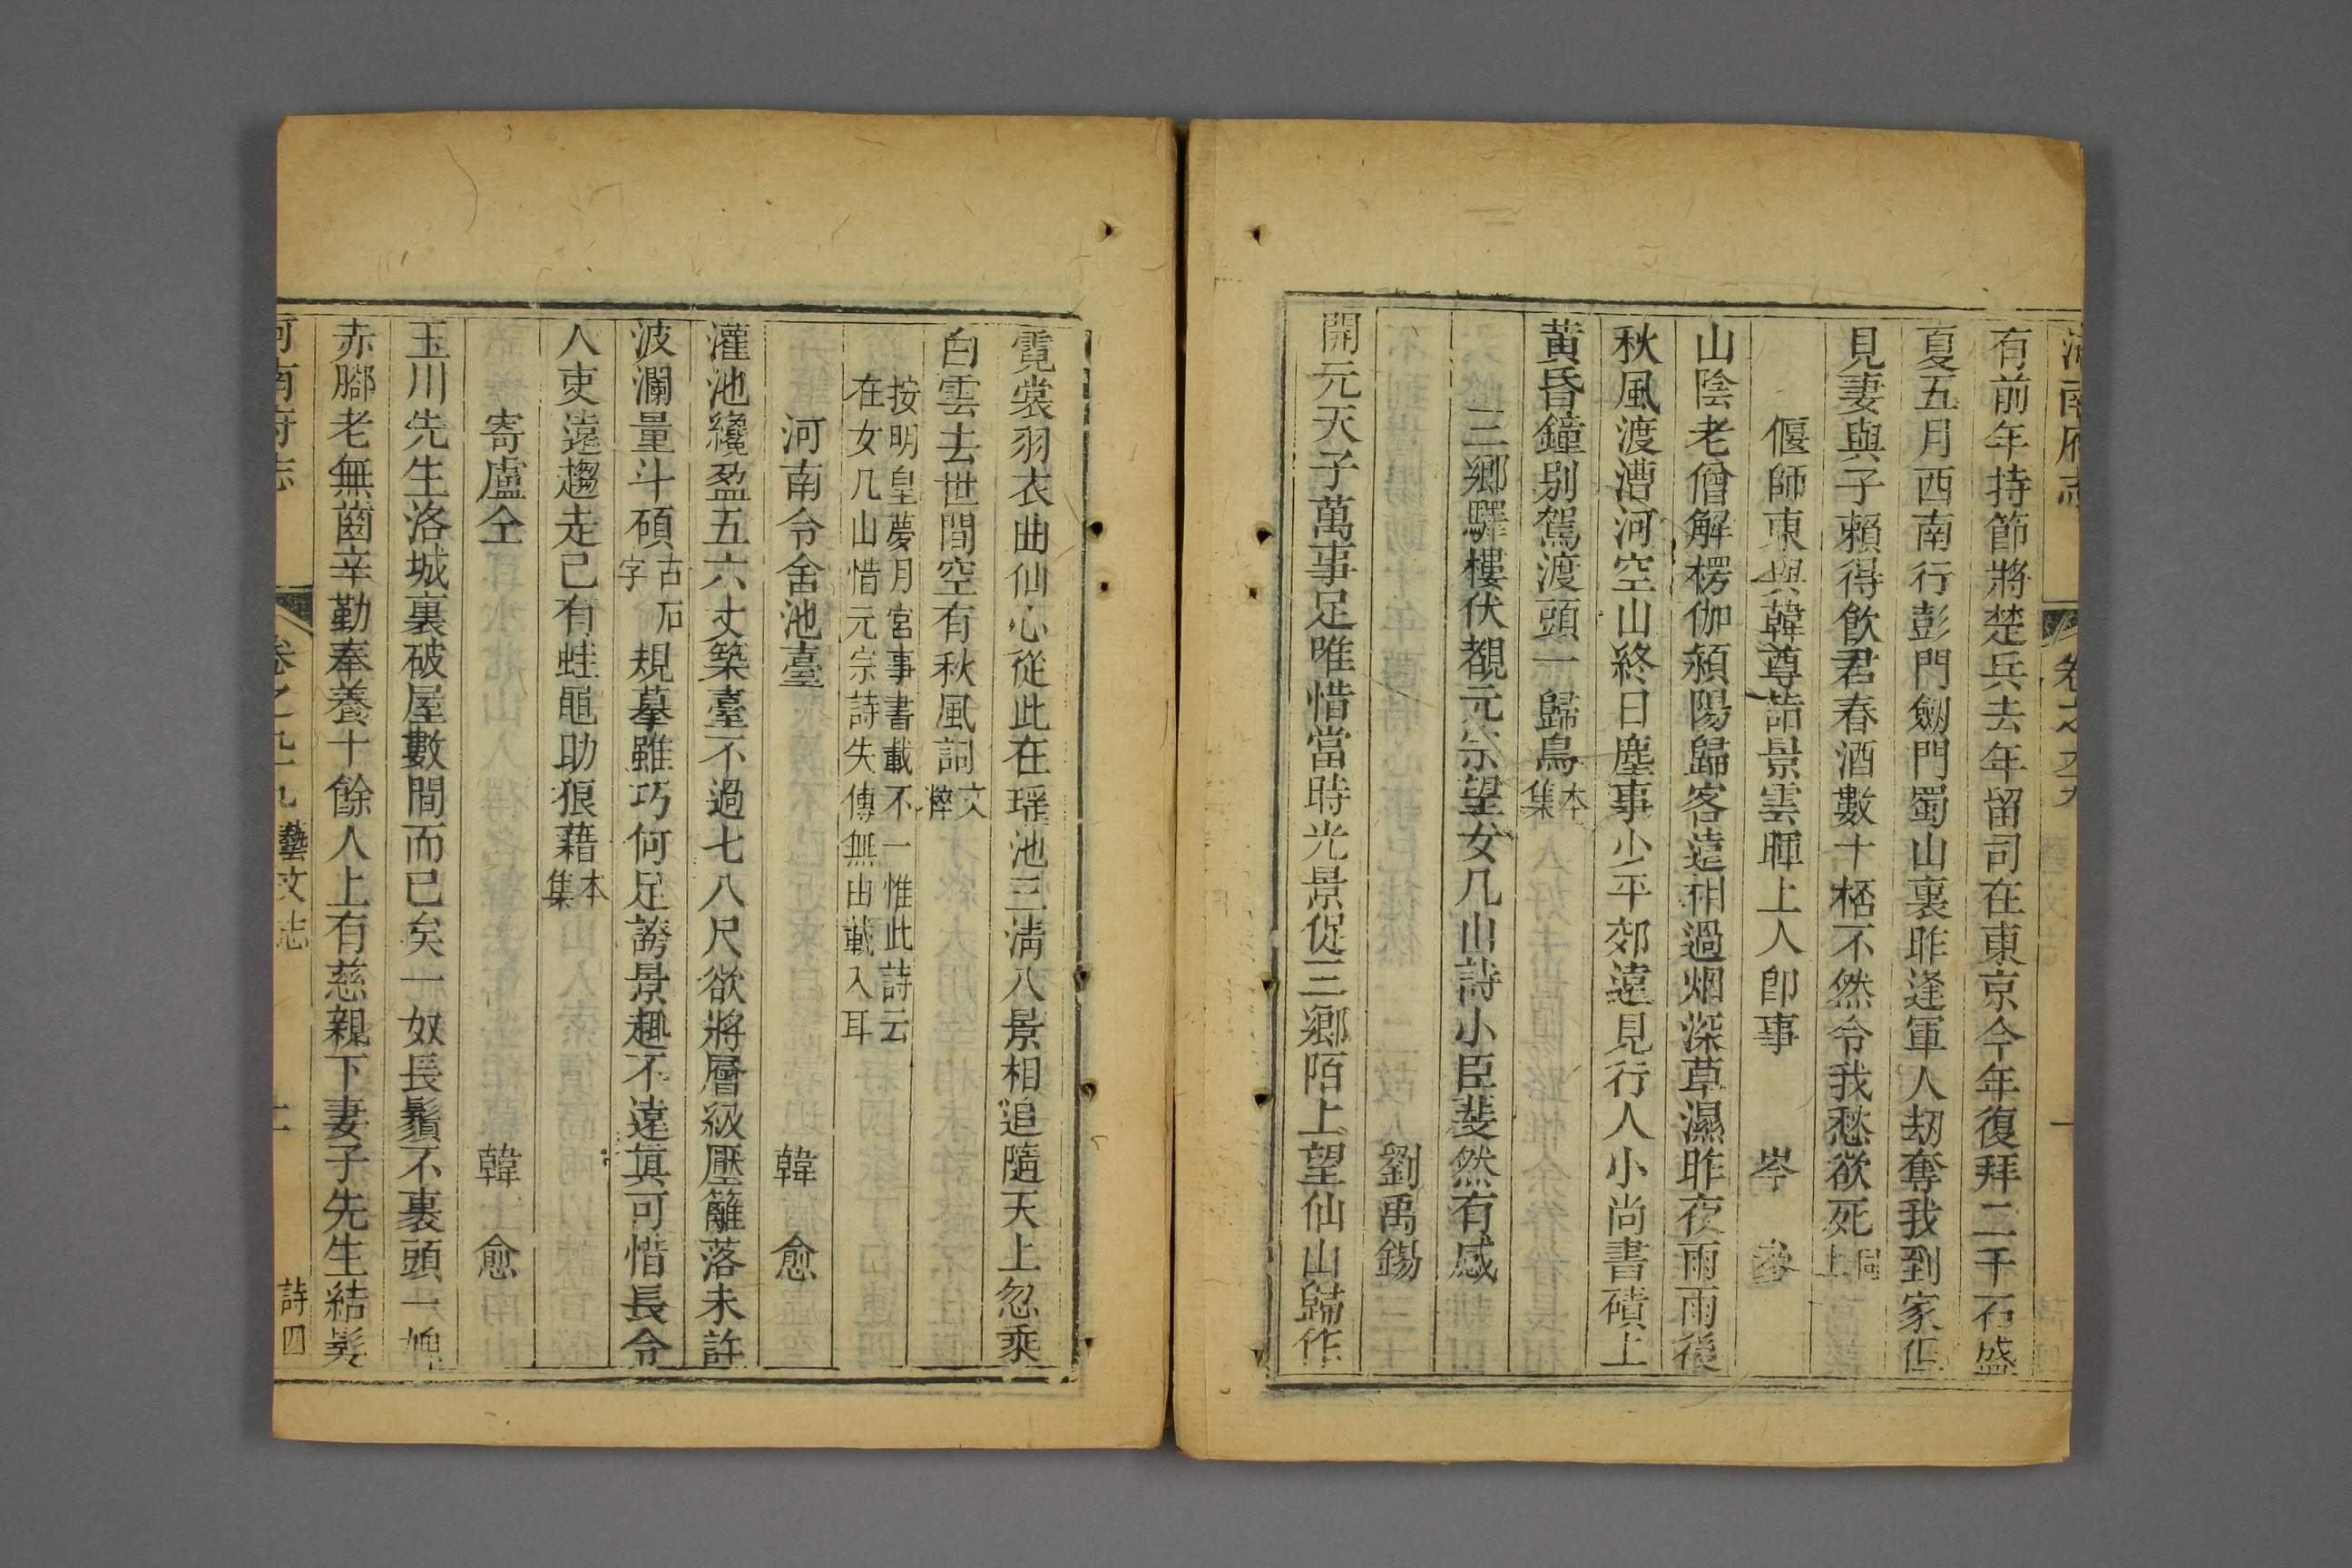 河南府志 卷之九十九
有前年持節將楚兵去年留司在東京今年復拜二千石盛
夏五月西南行彭門劒門蜀山裏昨逢軍人刼奪我到家但
見妻與子賴得飲君春酒數十桮不然令我愁欲死同上
偃師東與韓尊詣景雲暉上人卽事 岑參
山陰老僧解楞伽潁陽歸客遠相過烟深草濕昨夜雨雨後
秋風渡漕河空山終日塵事少平郊遠見行人小尚書磧上
黃昏鐘别駕渡頭一歸鳥本集
三鄉驛樓伏覩元宗望女几山詩小臣斐然有感
劉禹錫
開元天子萬事足唯惜當時光景促三鄉陌上望仙山歸作
霓裳羽衣曲仙心從此在瑶池三清八景相追隨天上忽乘
白雲去世間空有秋風詞文粹
按明皇夢月宮事書載不一惟此詩云
在女几山惜元宗詩失傳無由載入耳
河南令舍池臺 韓愈
灌池纔盈五六丈築臺不過七八尺欲將層級壓籬落未許
波瀾量斗碩古石字規摹雖巧何足誇景趣不遠眞可惜長令
人吏遠趨走已有蛙黽助狼藉本集
寄盧仝 韓愈
玉川先生洛城裏破屋數間而已矣一奴長鬚不裹頭一婢
赤腳老無齒辛勤奉養十餘人上有慈親下妻子先生結髮
河南府志 卷之九十九 藝文志 詩四